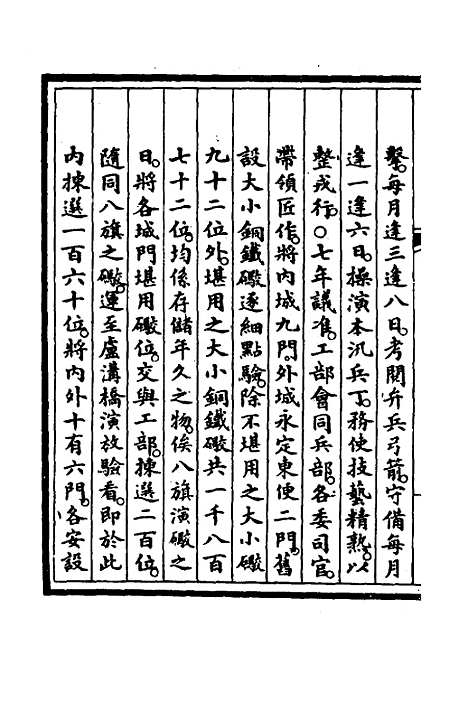 擊。每月逢三逢八日。考閱弁兵弓箭。守備每月
逢一逢六日。操演本汛兵丁。務使技藝精熟。以
整戎行。○七年議准。工部會同兵部。各委司官。
帶領匠作。將內城九門。外城永定東便二門。舊
設大小銅鐵礮逐細點驗。除不堪用之大小礮
九十二位外。堪用之大小銅鐵礮共一千八百
七十二位。均係存儲年久之物。俟八旗演礮之
日。將各城門堪用礮位。交與工部。揀選二百位。
隨同八旗之礮。運至盧溝橋演放驗看。即於此
內揀選一百六十位。將內外十有六門。各安設